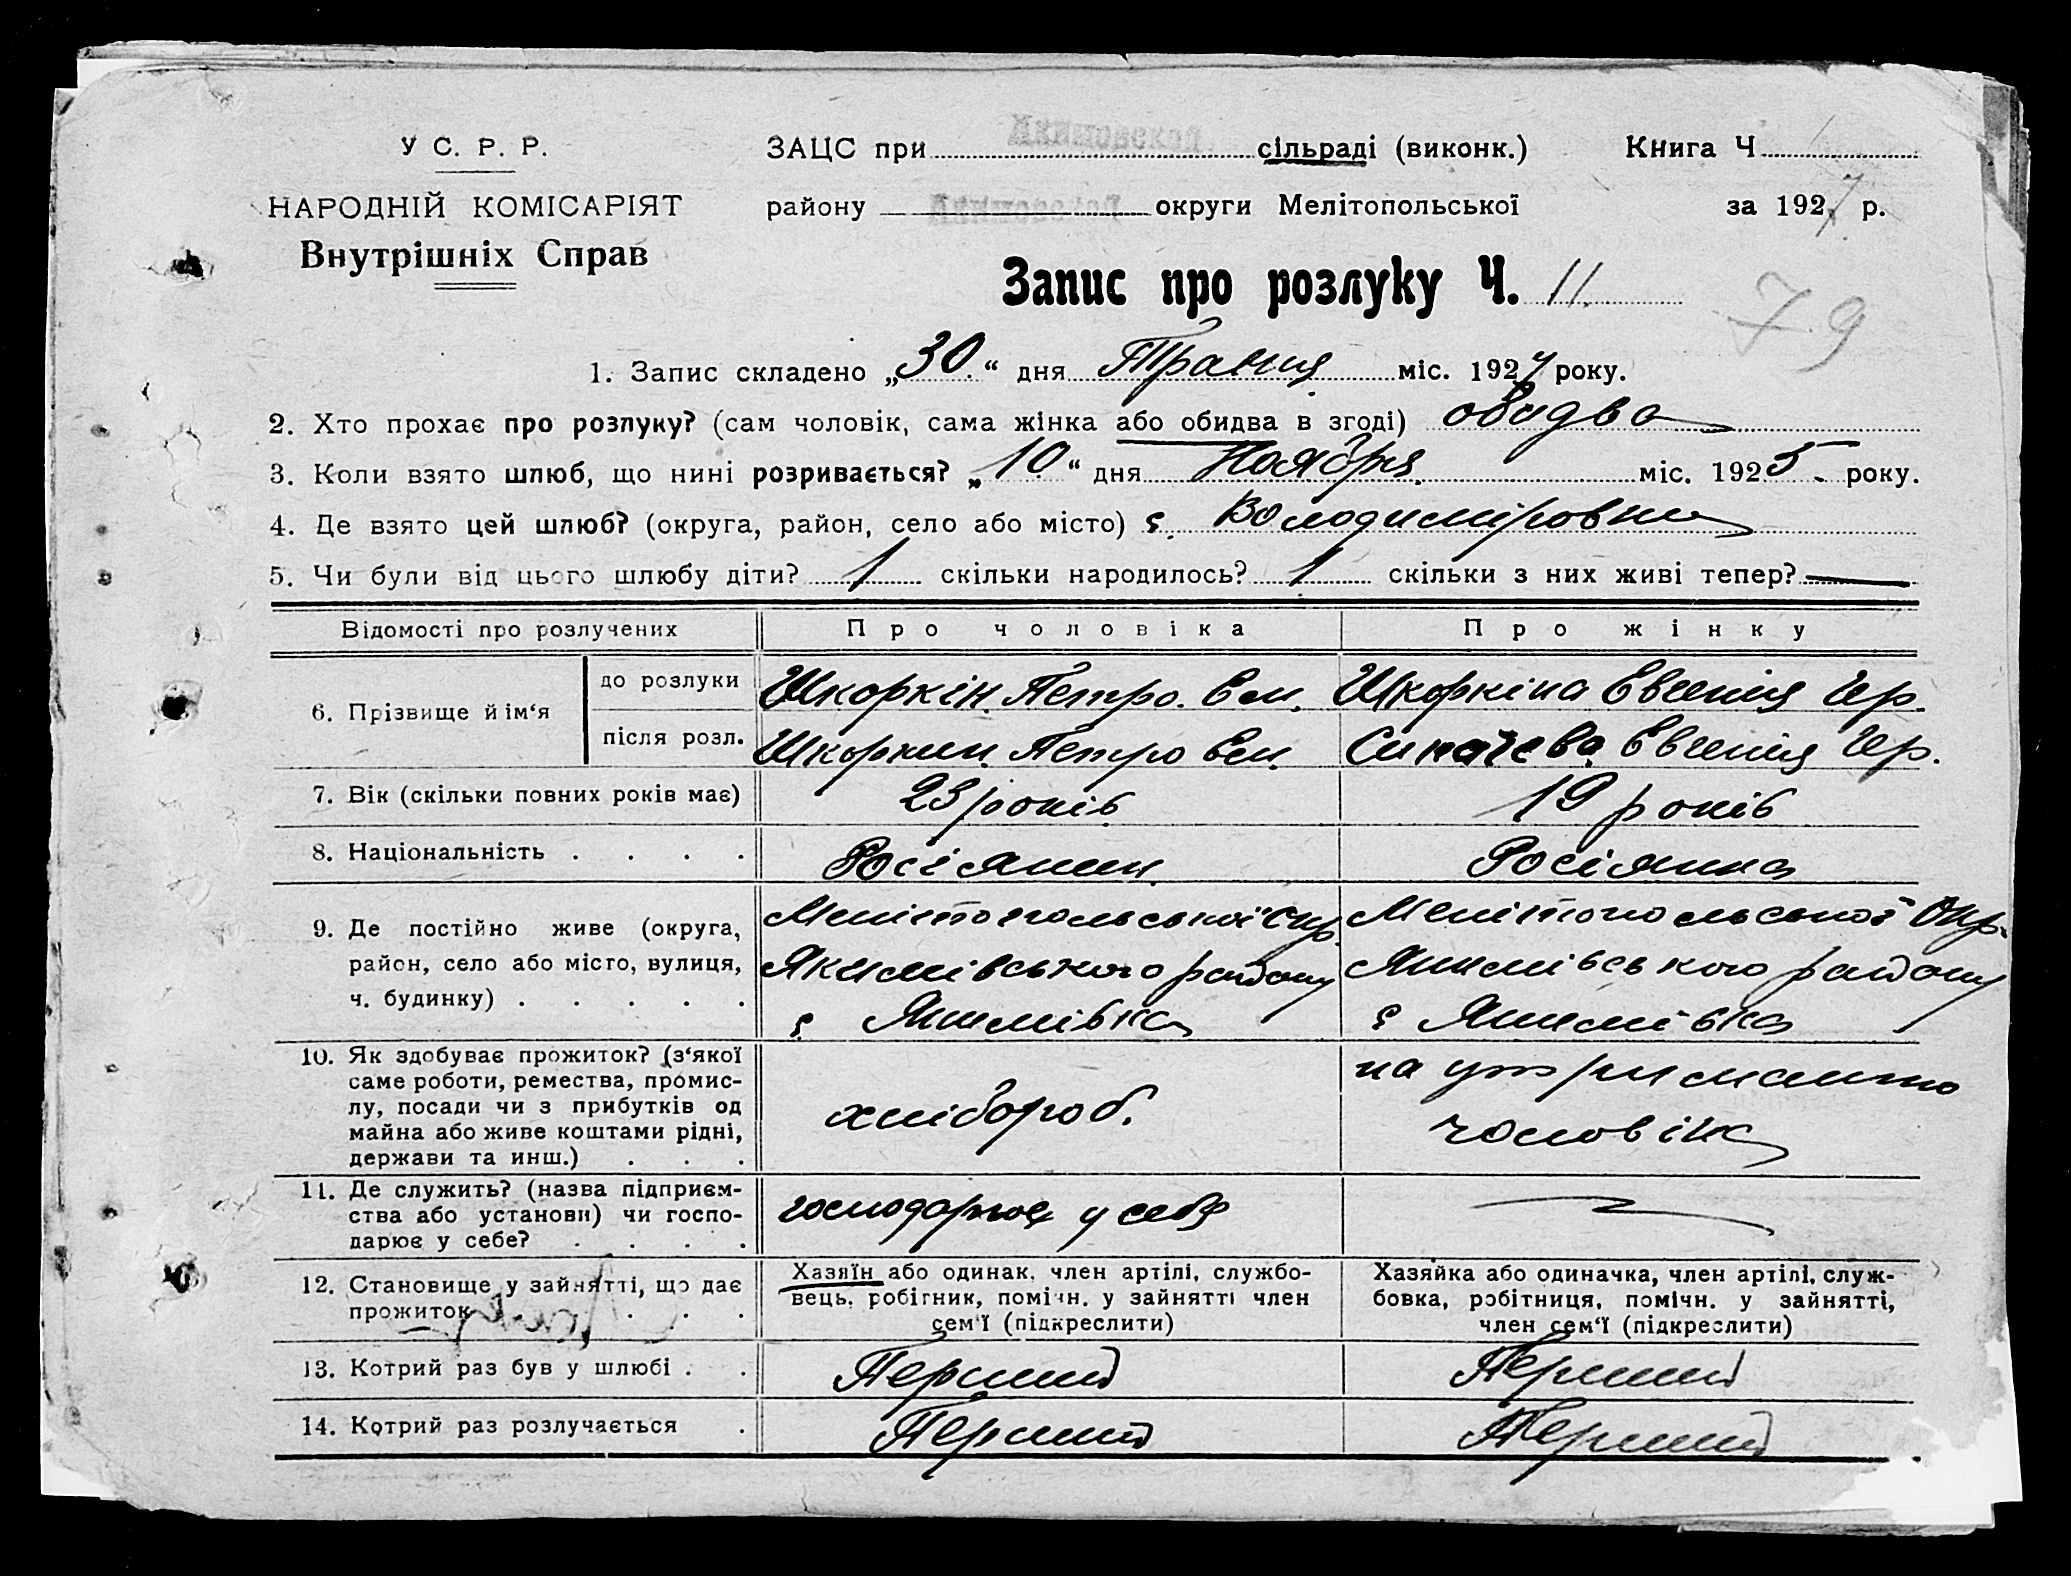 У С. Р. Р.
НАРОДНІЙ КОМІСАРІЯТ
Внутрішніх Справ
ЗАЦС при Акимовской сільраді (виконк.)
Книга Ч
району округи Мелітопольської
за 1927 р.
Запис про розлуку Ч. 11.
79
1. Запис складено „30“ дня Травня міс. 1927 року.
2. Хто прохає про розлуку? (сам чоловік, сама жінка або обидва в згоді) обидва
3. Коли взято шлюб, що нині розривається? „10“ дня Ноября міс. 1925 року.
4. Де взято цей шлюб? (округа, район, село або місто) с. Володиміровка
5. Чи були від цього шлюбу діти? 1 скільки народилось? 1 скільки з них живі тепер? —
Відомості про розлучених
Про чоловіка
Про жінку
6. Прізвище й ім‘я
до розлуки
Шкоркін Петро Ем.
Шкоркіна Евгенія Гр.
після розл.
Шкоркин Петро Ем.
Евгенія Гр.
7. Вік (скільки повних років має)
23 років
19 років
8. Національність . . . .
Росіянин
Росіянка
9. Де постійно живе (округа,
район, село або місто, вулиця,
ч. будинку) . . . . .
Мелітопольської Окр.
Якимівського району
с Якимівка
Мелітопольської Окр.
Якимівського району
с Якимівка
10. Як здобуває прожиток? (з‘якої
саме роботи, ремества, промис-
лу, посади чи з прибутків од
майна або живе коштами рідні,
держави та инш.) . . .
хлібороб.
на утриманню
чоловіка
11. Де служить? (назва підприєм-
ства або установи) чи госпо-
дарює у себе? . . . .
господарює у себе
—
12. Становище у зайнятті, що дає
прожиток . . .
Хазяїн або одинак, член артілі, службо-
вець, робітник, помічн. у зайнятті член
сем‘ї (підкреслити)
Хазяйка або одиначка, член артілі, служ-
бовка, робітниця, помічн. у зайнятті,
член сем‘ї (підкреслити)
13. Котрий раз був у шлюбі . .
Перший
Перший
14. Котрий раз розлучається .
Перший
Перший